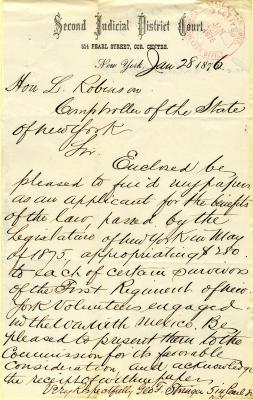 Second Judicial District Court,
514 PEARL STREET, COR. CENTRE.
New York, Jan 28 1876
Hon L. Robinson
Comptroller of the State
of New York
Sir
Enclosed be
pleased to find my papers
as an applicant for the benefits
of the law, passed by the
Legislature of New York in May
of 1875, appropriating $250
to each of certain survivors
of the First Regiment of New
York Volunteers engaged
in the War with Mexico. Be
pleased to present them to the
Commission for its favorable
consideration, and acknowledge
the receipt of within papers.
Very Respectfully Geo F. Stringer